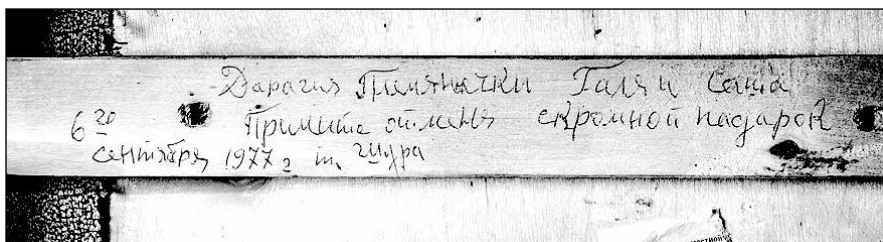 Дарагия Племяначки Галя и Саша
6 20 Примите от меня скромной падарок
сентября 1977 г т. Шура